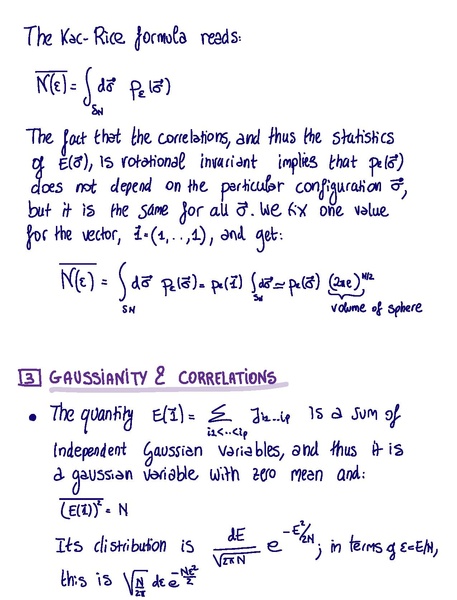 The Kac-Rice formula reads:
\overline{N(ε)} = ∫_{S_N} dσ⃗ p_ε(σ⃗)
The fact that the correlations, and thus the statistics
of E(σ⃗), is rotational invariant implies that p_ε(σ⃗)
does not depend on the particular configuration σ⃗,
but it is the same for all σ⃗. We fix one value
for the vector, 1⃗=(1,..,1), and get:
\overline{N(ε)} = ∫_{S_N} dσ⃗ p_ε(σ⃗) = p_ε(1⃗) ∫_{S_N} dσ⃗ ≃ p_ε(σ⃗) (2πe)^{N/2}
volume of sphere
3 GAUSSIANITY & CORRELATIONS
• The quantity E(1⃗) = ∑_{i1<..<ip} J_{i1...ip} is a sum of
independent Gaussian variables, and thus it is
a gaussian variable with zero mean and:
\overline{(E(1⃗))^2} = N
Its distribution is dE/√(2πN) e^{-E²/2N}; in terms of ε=E/N,
this is √(N/2π) dε e^{-Nε²/2}